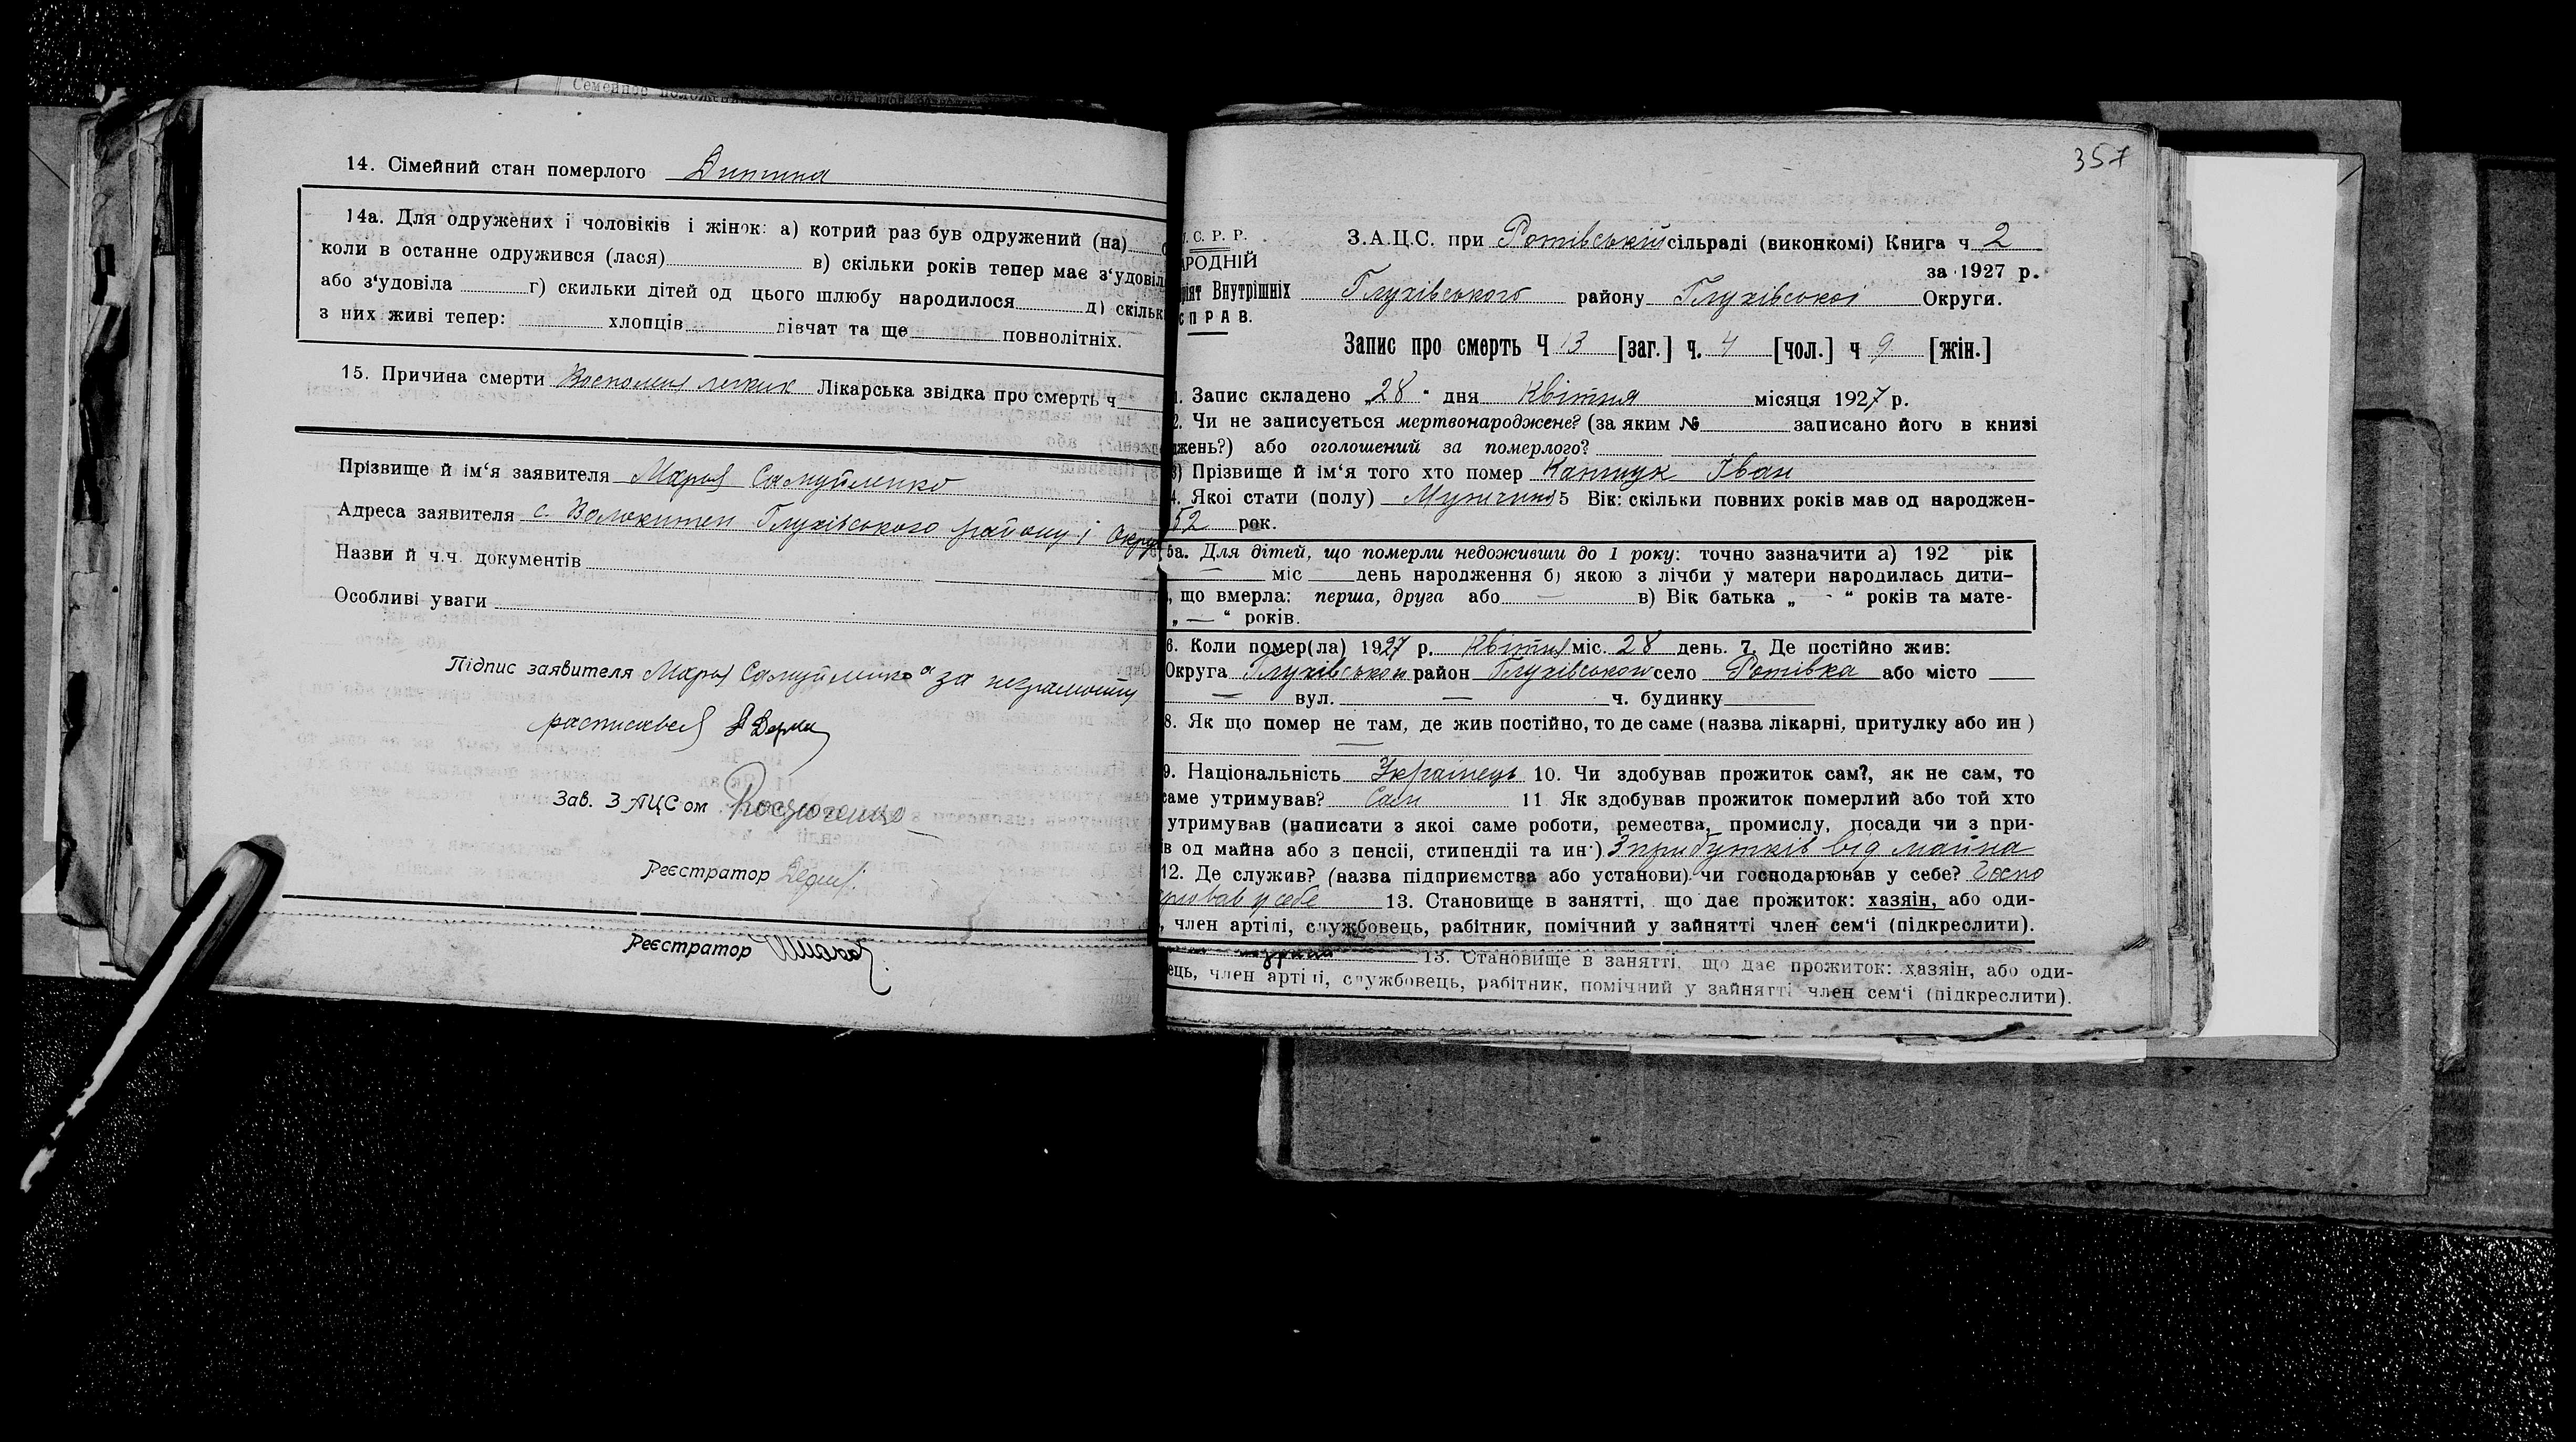 14. Сімейний стан померлого Дитина
14а. Для одружених і чоловіків і жінок: а) котрий раз був одружений (на)
коли в останнє одружився (лася) в) скільки років тепер має з‘удовіл
або з‘удовіла г) скильки дітей од цього шлюбу народилося д) скільк
з них живі тепер: хлопців дівчат та ще повнолітніх.
15. Причина смерти легких Лікарська звідка про смерть ч
Прізвище й ім‘я заявителя Марья Самуйленко
Адреса заявителя с. Волокитен Глухівського району і Окру
Назви й ч.ч. документів
Особливі уваги
Підпис заявителя Марья Самуйленко а за неграмотну
росписався
Зав. ЗАЦСом
Реєстратор
Реєстратор
357
У. С. Р. Р.
АРОДНІЙ
ріят Внутрішніх
СПРАВ.
З.А.Ц.С. при Фотівській сільраді (виконкомі) Книга ч 2
за 1927 р.
Глухівського району Глухівської Округи.
Запис про смерть Ч 13 [заг.] ч. 4 [чол.] ч 9 [жін.]
1. Запис складено „28“ дня Квітня місяця 1927 р.
2. Чи не записується мертвонароджене? (за яким № записано його в книзі
джень?) або оголошений за померлого?
3) Прізвище й ім‘я того хто помер Іван
4. Якої стати (полу) Мущина 5 Вік: скільки повних років мав од народжен-
52 рок.
5а. Для дітей, що померли недоживши до 1 року: точно зазначити а) 192 рік
— міс день народження б) якою з лічби у матери народилась дити-
, що вмерла: перша, друга або — в) Вік батька „ - “ років та мате-
„ — “ років.
6. Коли помер(ла) 1927 р. Квітня міс. 28 день. 7. Де постійно жив:
Округа Глухівського район Глухівського село Фотівка або місто
— вул. — ч. будинку
8. Як що помер не там, де жив постійно, то де саме (назва лікарні, притулку або ин )
—
9. Національність Українець 10. Чи здобував прожиток сам?, як не сам, то
саме утримував? Сам 11 Як здобував прожиток померлий або той хто
утримував (написати з якої саме роботи, ремества, промислу, посади чи з при-
ів од майна або з пенсіи, стипендії та ин·) З прибутків від майна
12. Де служив? (назва підприємства або установи) чи господарював у себе? Госпо
рював у себе 13. Становище в занятті, що дає прожиток: хазяін, або оди-
, член артілі, службовець, рабітник, помічний у зайнятті член сем‘і (підкреслити).
13. Становище в занятті, що дає прожиток: хазяін, або оди-
ець, член артілі, службовець, рабітник, помічний у зайнятті член сем‘і (підкреслити).